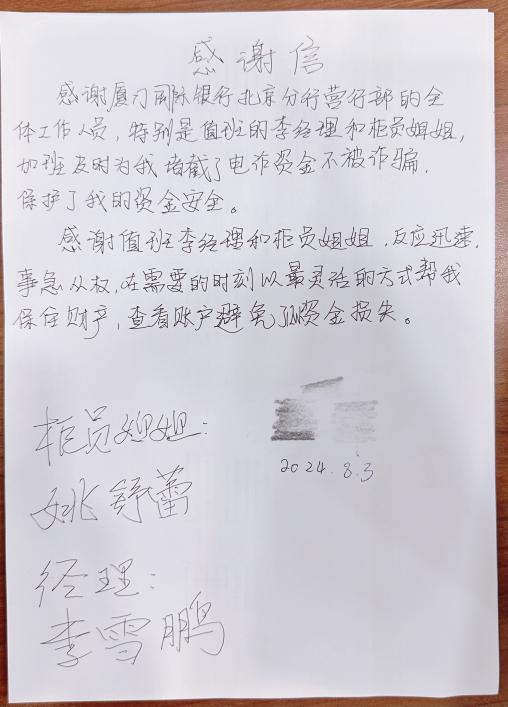 感谢信
感谢厦门国际银行北京分行营行部的全
体工作人员，特别是值班的李经理和柜员姐姐，
加班及时为我堵截了电诈资金不被诈骗，
保护了我的资金安全。
感谢值班李经理和柜员姐姐，反应迅速，
事急从权，在需要的时刻以最灵活的方式帮我
保住财产，查看账户避免了资金损失。
2024.8.3
柜员姐姐：
姚舒蕾
经理：
李雪鹏